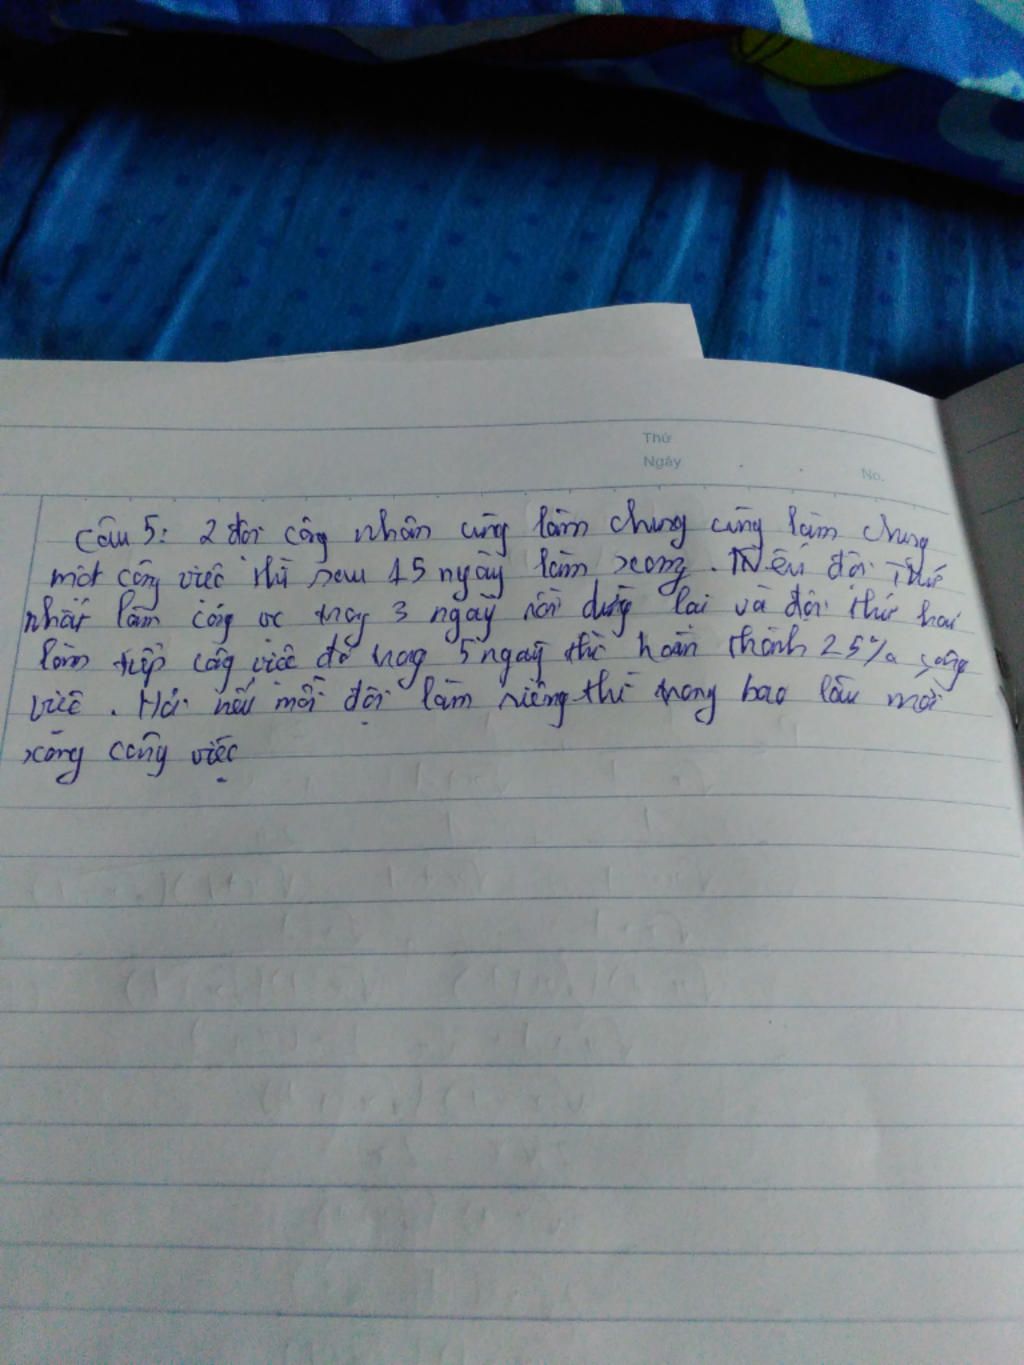 Thứ
Ngày
No.
Câu 5: 2 đội công nhân cùng làm chung cùng làm chung
một công việc thì sau 15 ngày làm xong. Nếu đội thứ
nhất làm công vc trong 3 ngày rồi dừng lại và đội thứ hai
làm tiếp công việc đó trong 5 ngày thì hoàn thành 25% công
việc. Hỏi nếu mỗi đội làm riêng thì trong bao lâu mới
xong công việc